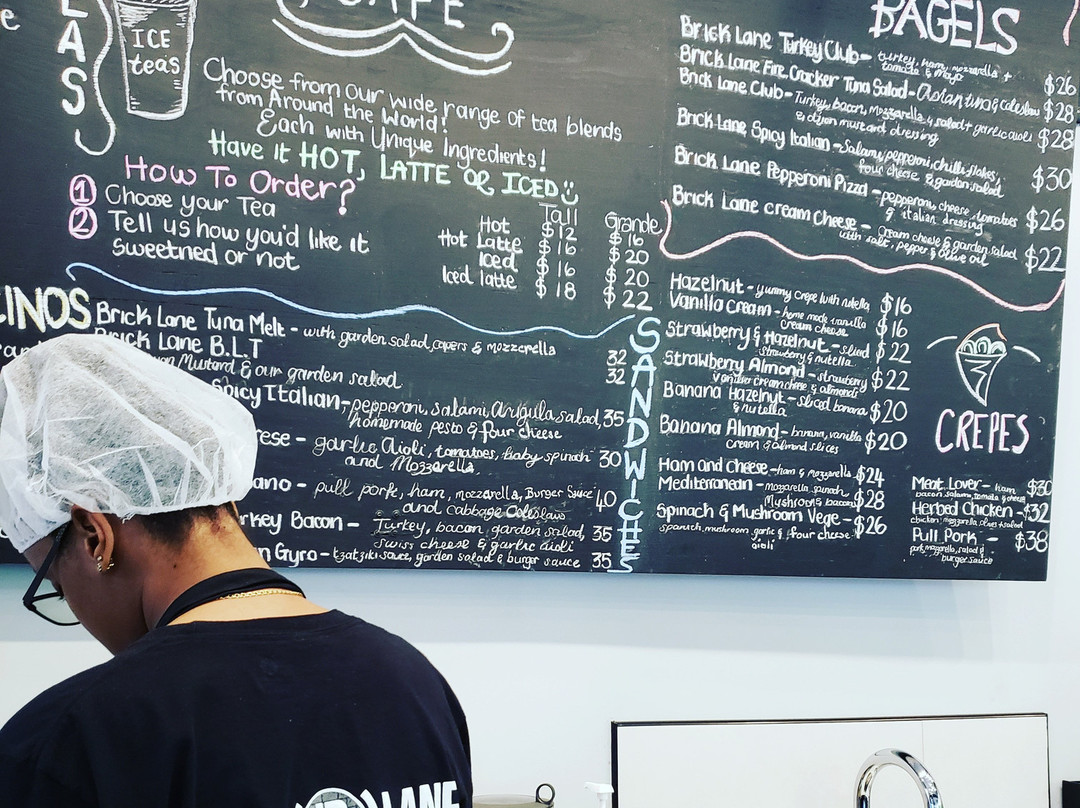 e
EAS
ICE
teas
CAFE
Choose from our wide range of tea blends
from Around the World!
Each with Unique Ingredients!
Have it HOT, LATTE or ICED
How To Order?
1 Choose your Tea
2 Tell us how you'd like it
sweetned or not
Tall Grande
Hot $12 $16
Hot Latte $16 $20
Iced $16 $20
Iced latte $18 $22
BAGELS
Brick Lane Turkey Club - turkey, ham, mozzarella + $26
tomato & mayo
Brick Lane Fire Cracker Tuna Salad - Asian tuna & coleslaw $28
Brick Lane Club - Turkey, bacon, mozzarella & salad + garlic aioli $28
& dijon mustard dressing
Brick Lane Spicy Italian - Salami, pepperoni, chilli flakes, $30
four cheese & garden salad
Brick Lane Pepperoni Pizza - pepperoni, cheese, tomatoes $26
& italian dressing
Brick Lane cream cheese - cream cheese & garden salad $22
with salt, pepper & olive oil
INOS
Brick Lane Tuna Melt - with garden salad, capers & mozzerella 32
Brick Lane B.L.T 32
Mustard & our garden salad
Spicy Italian - pepperoni, salami, arugula salad, 35
homemade pesto & four cheese
rese - garlic aioli, tomatoes, baby spinach 30
and Mozzarella
ano - pull pork, ham, mozzarella, Burger Sauce 40
and cabbage Coleslaw
rkey Bacon - Turkey, bacon, garden salad, 35
swiss cheese & garlic aioli
n Gyro - tzatziki sauce, garden salad & burger sauce 35
SANDWICHES
Hazelnut - yummy crepe with nutella $16
Vanilla Cream - home made vanilla $16
cream cheese
Strawberry & Hazelnut - sliced $22
strawberry & nutella
Strawberry Almond - strawberry $22
vanilla cream cheese & almonds
Banana Hazelnut - sliced banana $20
& nutella
Banana Almond - banana, vanilla $20
cream & almond slices
Ham and Cheese - ham & mozzarella $24
Mediterranean - mozzarella, spinach $28
Mushroom & bacon
Spinach & Mushroom Vege - $26
spanich, mushroom, garlic & four cheese
aioli
CREPES
Meat Lover - ham $30
bacon, salami, tomato & cheese
Herbed Chicken - $32
chicken, mozzarella, olives & salad
Pull Pork - $38
pork, mozzarella, salad &
burger sauce
LANE